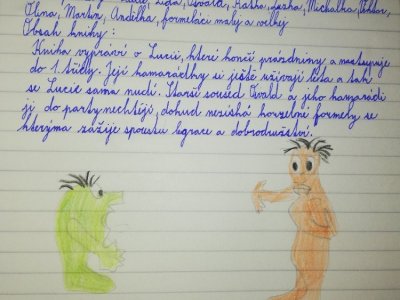 Lída, Osvald, Katka, Lesha, Michalka, Viktor,
Olina, Martin, Andělka, formeláci malý a velký
Obsah knihy:
Kniha vypráví o Lucii, které končí prázdniny a nastupuje
do 1. třídy. Její kamarádky si ještě užívají léta a tak
se Lucie sama nudí. Starší soused Osvald a jeho kamarádi
ji do party nechtějí, dokud nezíská kouzelné formely se
kterýma zažije spoustu legrace a dobrodružství.